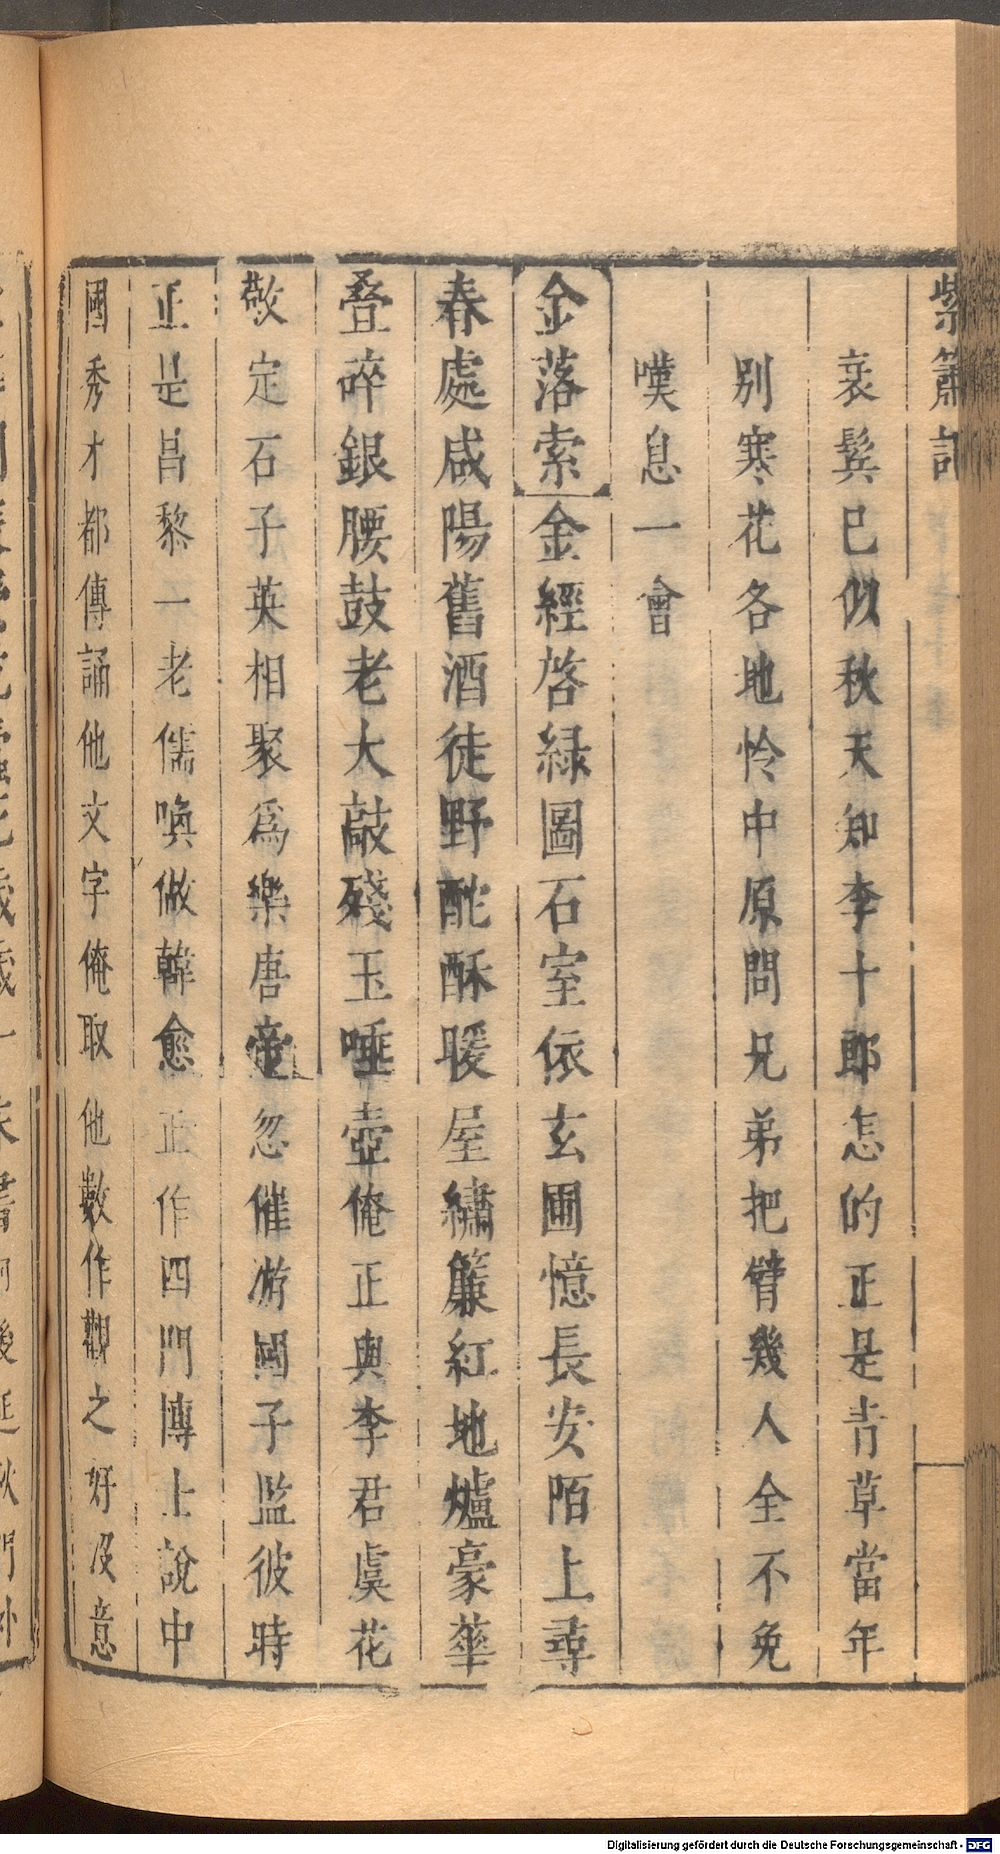 紫簫記
衰鬂已似秋天知李十郎怎的正是青草當年
別寒花各地怜中原問兄弟把臂幾人全不免
嘆息一會
金落索金經啓緑圖石室依玄圃憶長安陌上尋
春處咸陽舊酒徒野酡酥暖屋繡簾紅地爐豪華
叠碎銀腰鼓老大敲殘玉唾壺俺正與李君虞花
敬定石子英相聚爲樂唐帝忽催游國子監彼時
正是昌黎一老儒喚做韓愈正作四門博士說中
國秀才都傳誦他文字俺取他數作觀之好没意
Digitalisierung gefördert durch die Deutsche Forschungsgemeinschaft - DFG